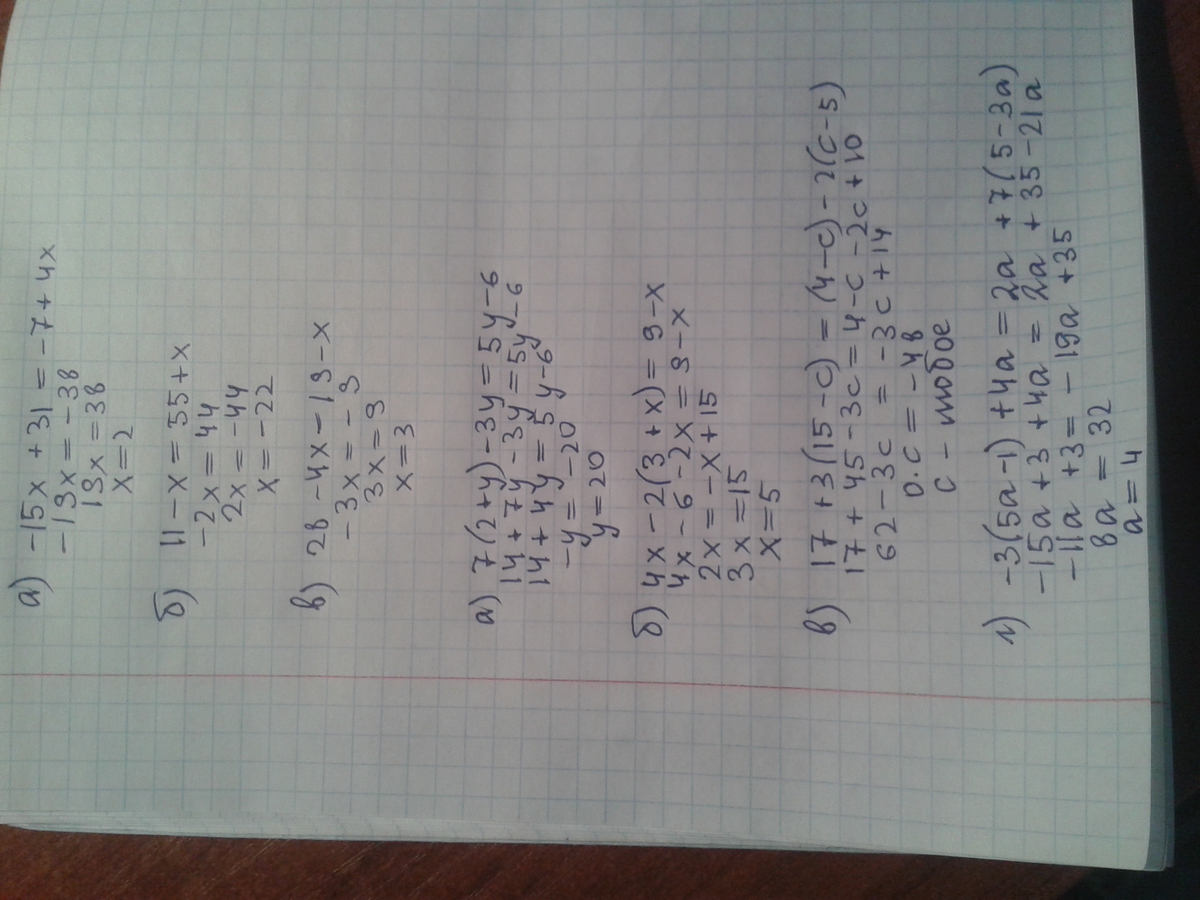 а) -15x + 31 = -7 + 4x
-19x = -38
19x = 38
x = 2
б) 11 - x = 55 + x
-2x = 44
2x = -44
x = -22
в) 28 - 4x = 19 - x
-3x = -9
3x = 9
x = 3
а) 7(2+y) - 3y = 5y - 6
14 + 7y - 3y = 5y - 6
14 + 4y = 5y - 6
-y = -20
y = 20
б) 4x - 2(3+x) = 9 - x
4x - 6 - 2x = 9 - x
2x = -x + 15
3x = 15
x = 5
в) 17 + 3(15 - c) = (4 - c) - 2(c - 5)
17 + 45 - 3c = 4 - c - 2c + 10
62 - 3c = -3c + 14
0·c = -48
c - любое
г) -3(5a - 1) + 4a = 2a + 7(5 - 3a)
-15a + 3 + 4a = 2a + 35 - 21a
-11a + 3 = -19a + 35
8a = 32
a = 4